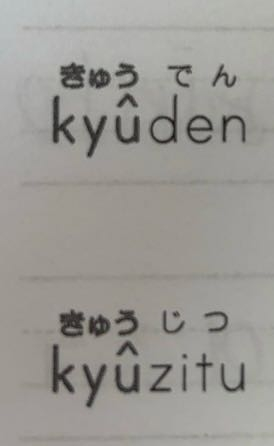 きゅう で ん
kyûden
きゅう じ つ
kyûzitu